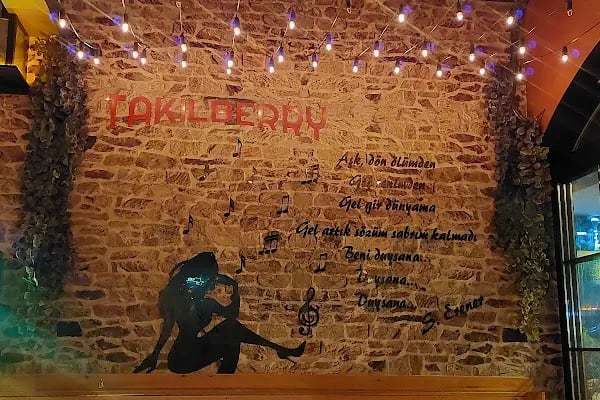 TAKILBERRY
Aşk, dön ölümden
Gel gir dünyama
Gel artık sözüm sabrım kalmadı
Beni duysana...
Duysana...
S. Esener